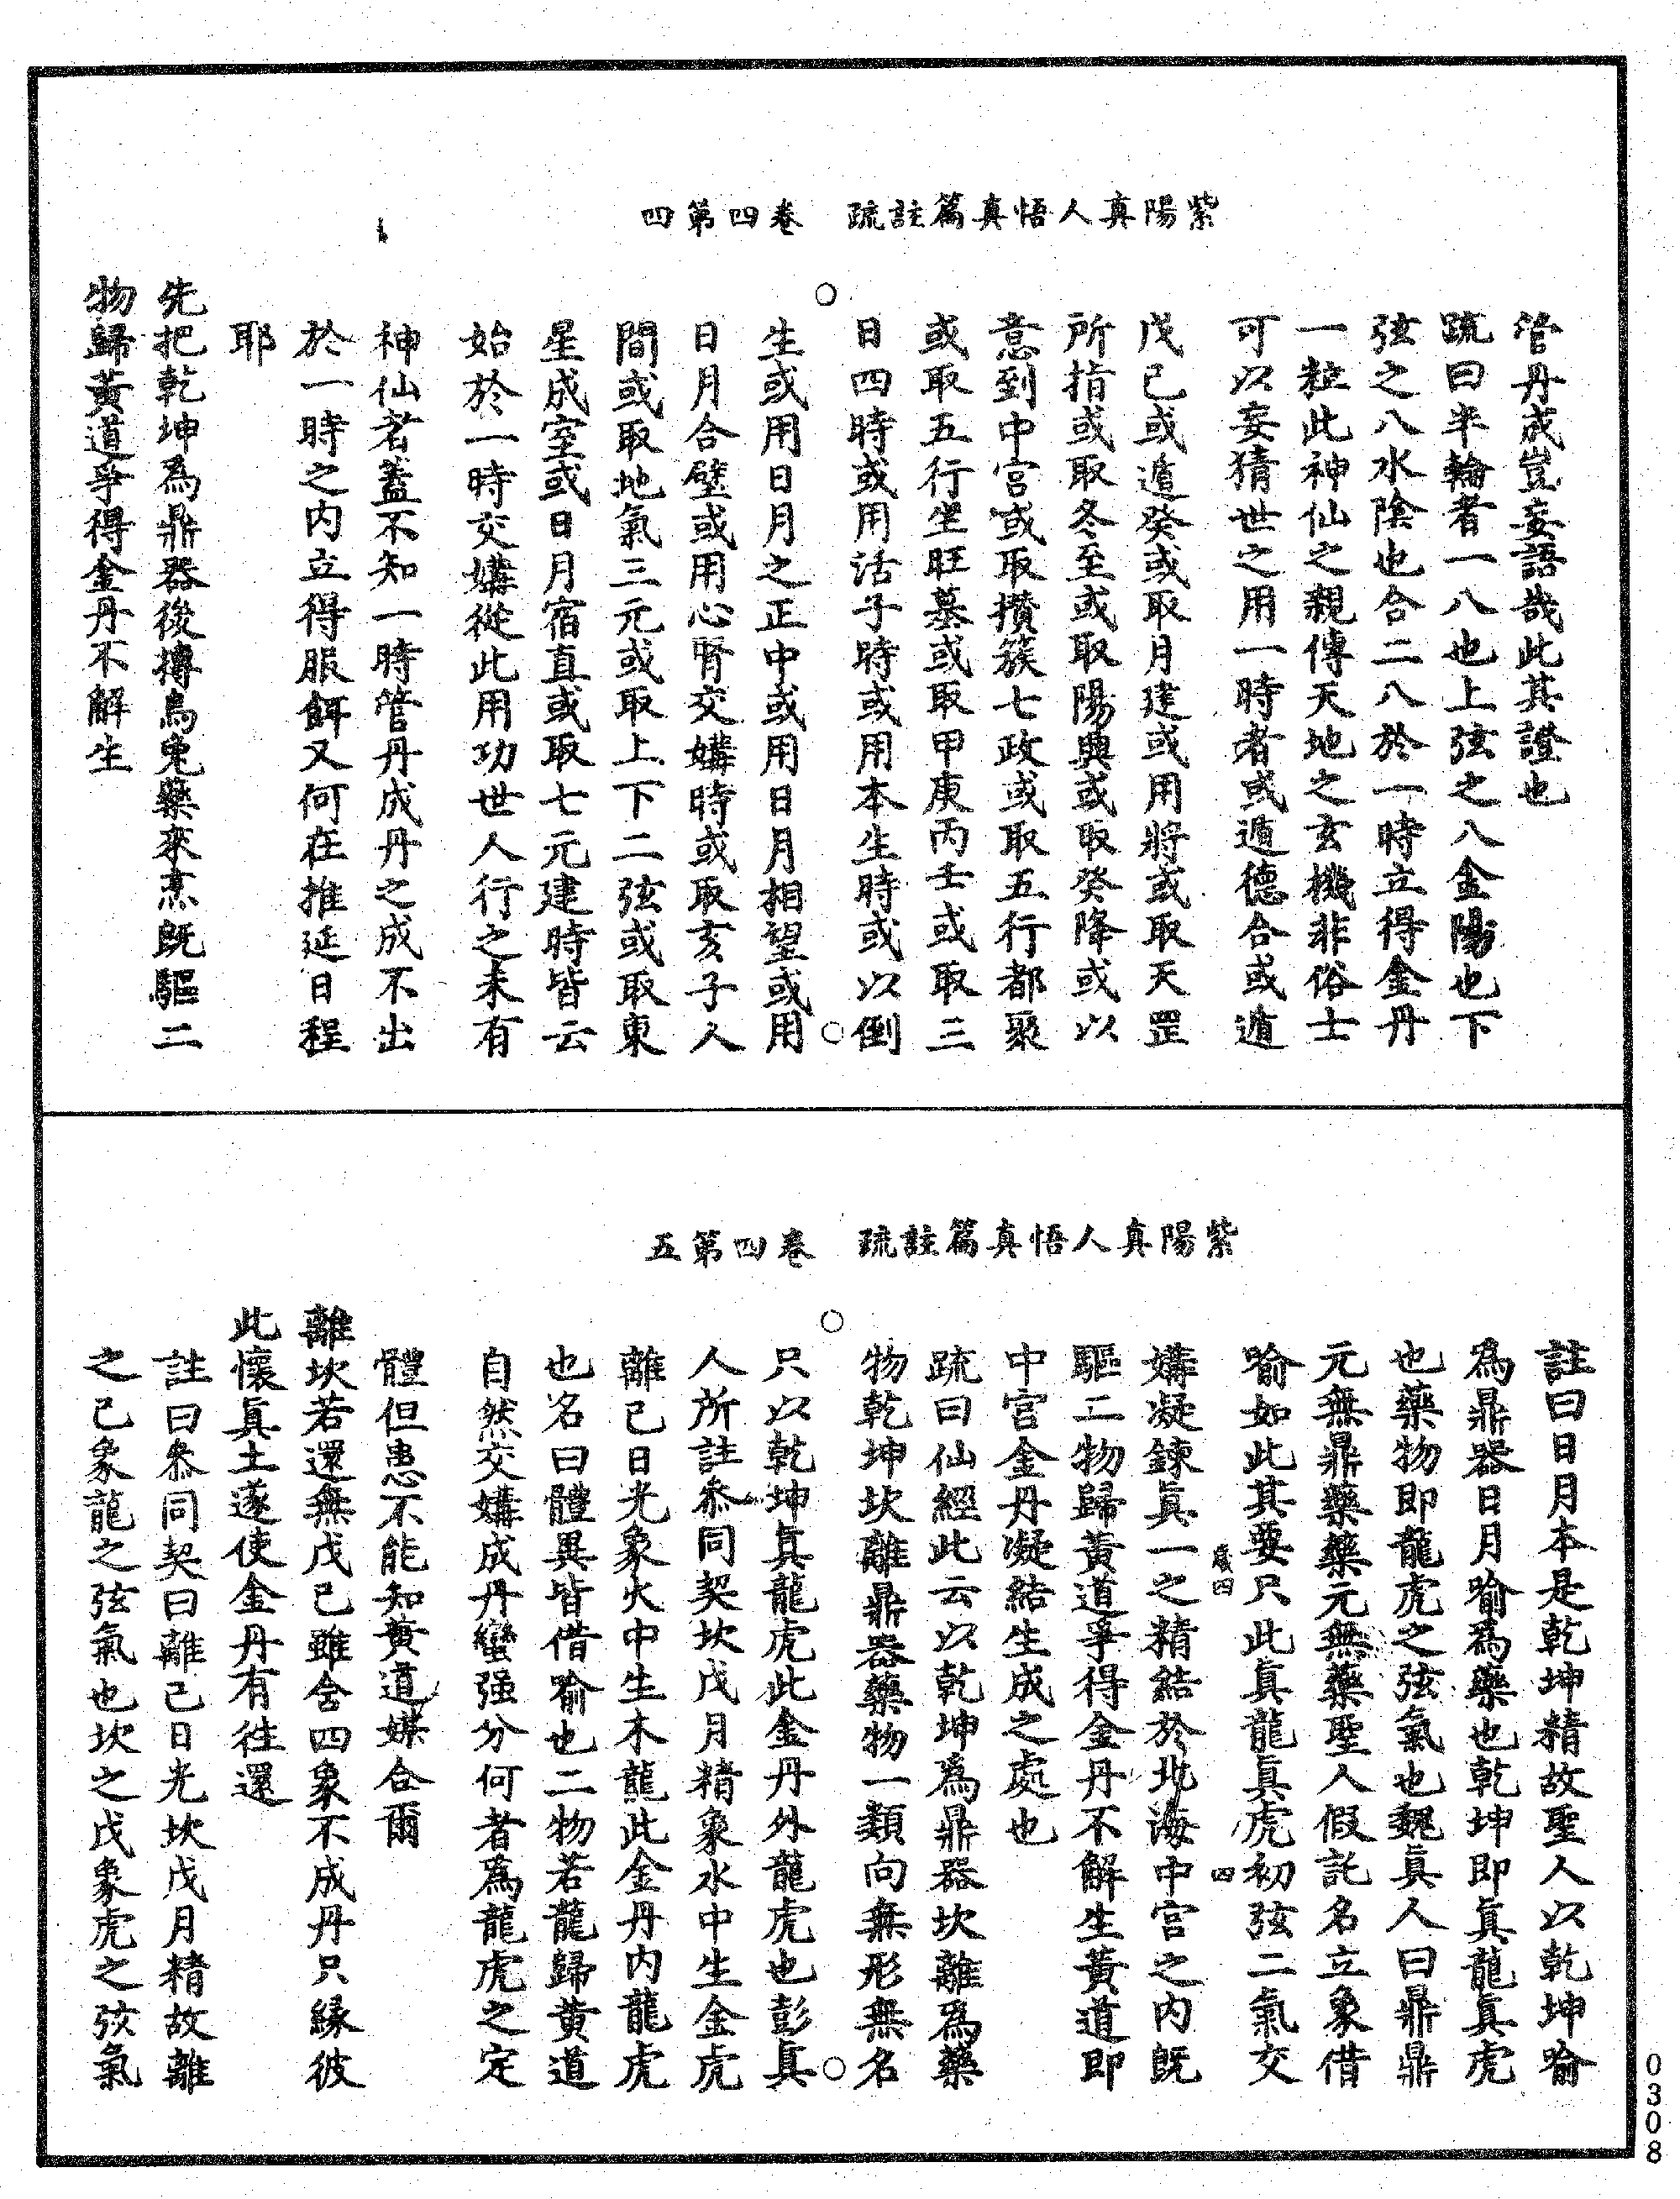 紫陽真人悟真篇註疏　卷四第四
管丹成豈妄語哉此其證也
疏曰半輪者一八也上弦之八金陽也下
弦之八水陰也合二八於一時立得金丹
一粒此神仙之親傳天地之玄機非俗士
可以妄猜世之用一時者或遁德合或遁
戊己或遁癸或取月建或用將或取天罡
所指或取冬至或取陽興或取癸降或以
意到中宮或取攢簇七政或取五行都聚
或取五行坐旺墓或取甲庚丙壬或取三
日四時或用活子時或用本生時或以倒
生或用日月之正中或用日月相望或用
日月合璧或用心腎交媾時或取亥子人
間或取地氣三元或取上下二弦或取東
星成室或日月宿直或取七元建時皆云
始於一時交媾從此用功世人行之未有
神仙者蓋不知一時管丹成丹之成不出
於一時之內立得服餌又何在推延日程
耶
先把乾坤為鼎器後摶烏兔藥來烹既驅二
物歸黃道爭得金丹不解生
紫陽真人悟真篇註疏　卷四第五
註曰日月本是乾坤精故聖人以乾坤喻
為鼎器日月喻為藥也乾坤即真龍真虎
也藥物即龍虎之弦氣也魏真人曰鼎鼎
元無鼎藥藥元無藥聖人假託名立象借
喻如此其要只此真龍真虎初弦二氣交
歲四　四
媾凝鍊真一之精結於北海中宮之內既
驅二物歸黃道爭得金丹不解生黃道即
中宮金丹凝結生成之處也
疏曰仙經此云以乾坤為鼎器坎離為藥
物乾坤坎離鼎器藥物一類向無形無名
只以乾坤真龍虎此金丹外龍虎也彭真
人所註叅同契坎戊月精象水中生金虎
離己日光象火中生木龍此金丹內龍虎
也名曰體異皆借喻也二物若龍歸黃道
自然交媾成丹蠻强分何者為龍虎之定
體但患不能知黃道媒合爾
離坎若還無戊己雖含四象不成丹只緣彼
此懷真土遂使金丹有往還
註曰叅同契曰離己日光坎戊月精故離
之己象龍之弦氣也坎之戊象虎之弦氣
0308